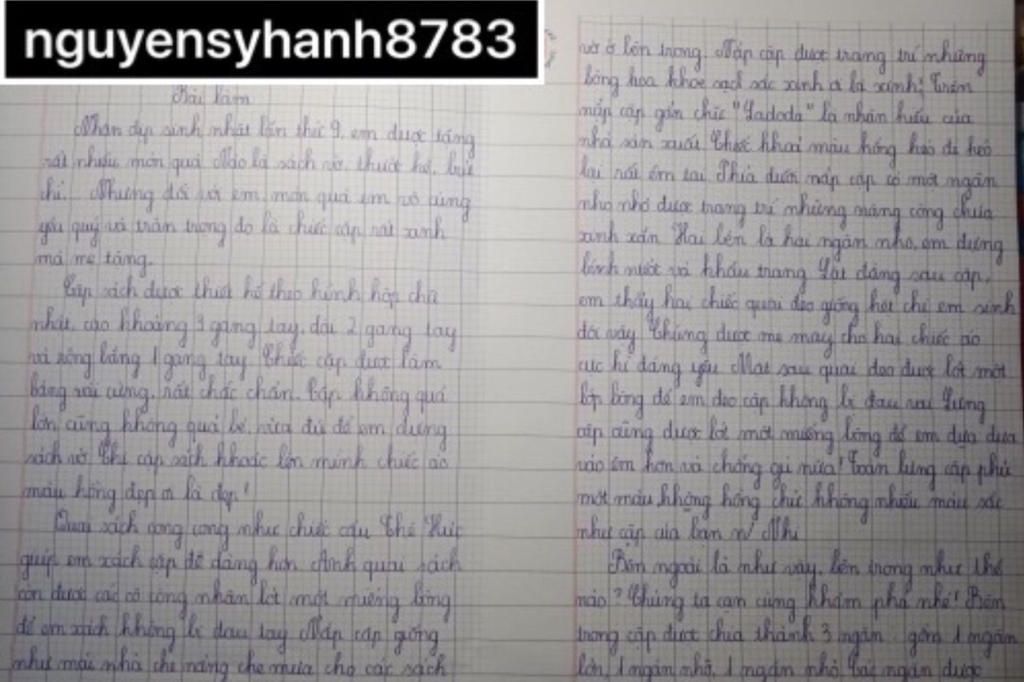 nguyensyhanh8783
Bài làm
Nhân dịp sinh nhật lần thứ 9, em được tặng
rất nhiều món quà. Nào là sách vở, thước kẻ, bút
chì... Nhưng đối với em, món quà em vô cùng
yêu quý và trân trọng đó là chiếc cặp rất xinh
mà mẹ tặng.
Cặp sách được thiết kế theo hình hộp chữ
nhật, cao khoảng 3 gang tay, dài 2 gang tay
và rộng bằng 1 gang tay. Chiếc cặp được làm
bằng vải cứng, rất chắc chắn. Cặp không quá
lớn cũng không quá bé, vừa đủ để em đựng
sách vở. Chị cặp sách khoác lên mình chiếc áo
màu hồng đẹp ơi là đẹp!
Quai xách cong cong như chiếc cầu Thê Húc
giúp em xách cặp dễ dàng hơn. Anh quai xách
còn được các cô công nhân lót một miếng bông
để em xách không bị đau tay. Nắp cặp giống
như mái nhà che nắng che mưa cho các sách
vở ở bên trong. Nắp cặp được trang trí những
bông hoa khoe sạch sắc xinh ơi là xinh! Trên
nắp cặp gắn chữ "Ladoda" là nhãn hiệu của
nhà sản xuất. Chiếc khoá màu hồng kéo đi kéo
lại rất êm tai. Phía dưới nắp cặp có một ngăn
nho nhỏ được trang trí những nàng công chúa
xinh xắn. Hai bên là hai ngăn nhỏ, em đựng
bình nước và khẩu trang. Lật đằng sau cặp,
em thấy hai chiếc quai đeo giống hai chị em sinh
đôi vậy. Chúng được mẹ may cho hai chiếc áo
cực kì đáng yêu. Mặt sau quai đeo được lót một
lớp bông để em đeo cặp không bị đau vai. Lưng
cặp cũng được lót một miếng bông để em dựa dựa
vào êm hơn và chống gù nữa! Toàn lưng cặp phủ
một màu hồng chứ không nhiều màu sắc
như cặp của bạn Nhi.
Bên ngoài là như vậy, bên trong như thế
nào? Chúng ta cùng khám phá nhé! Bên
trong cặp được chia thành 3 ngăn: gồm 1 ngăn
lớn, 1 ngăn nhỡ, 1 ngăn nhỏ. Các ngăn được